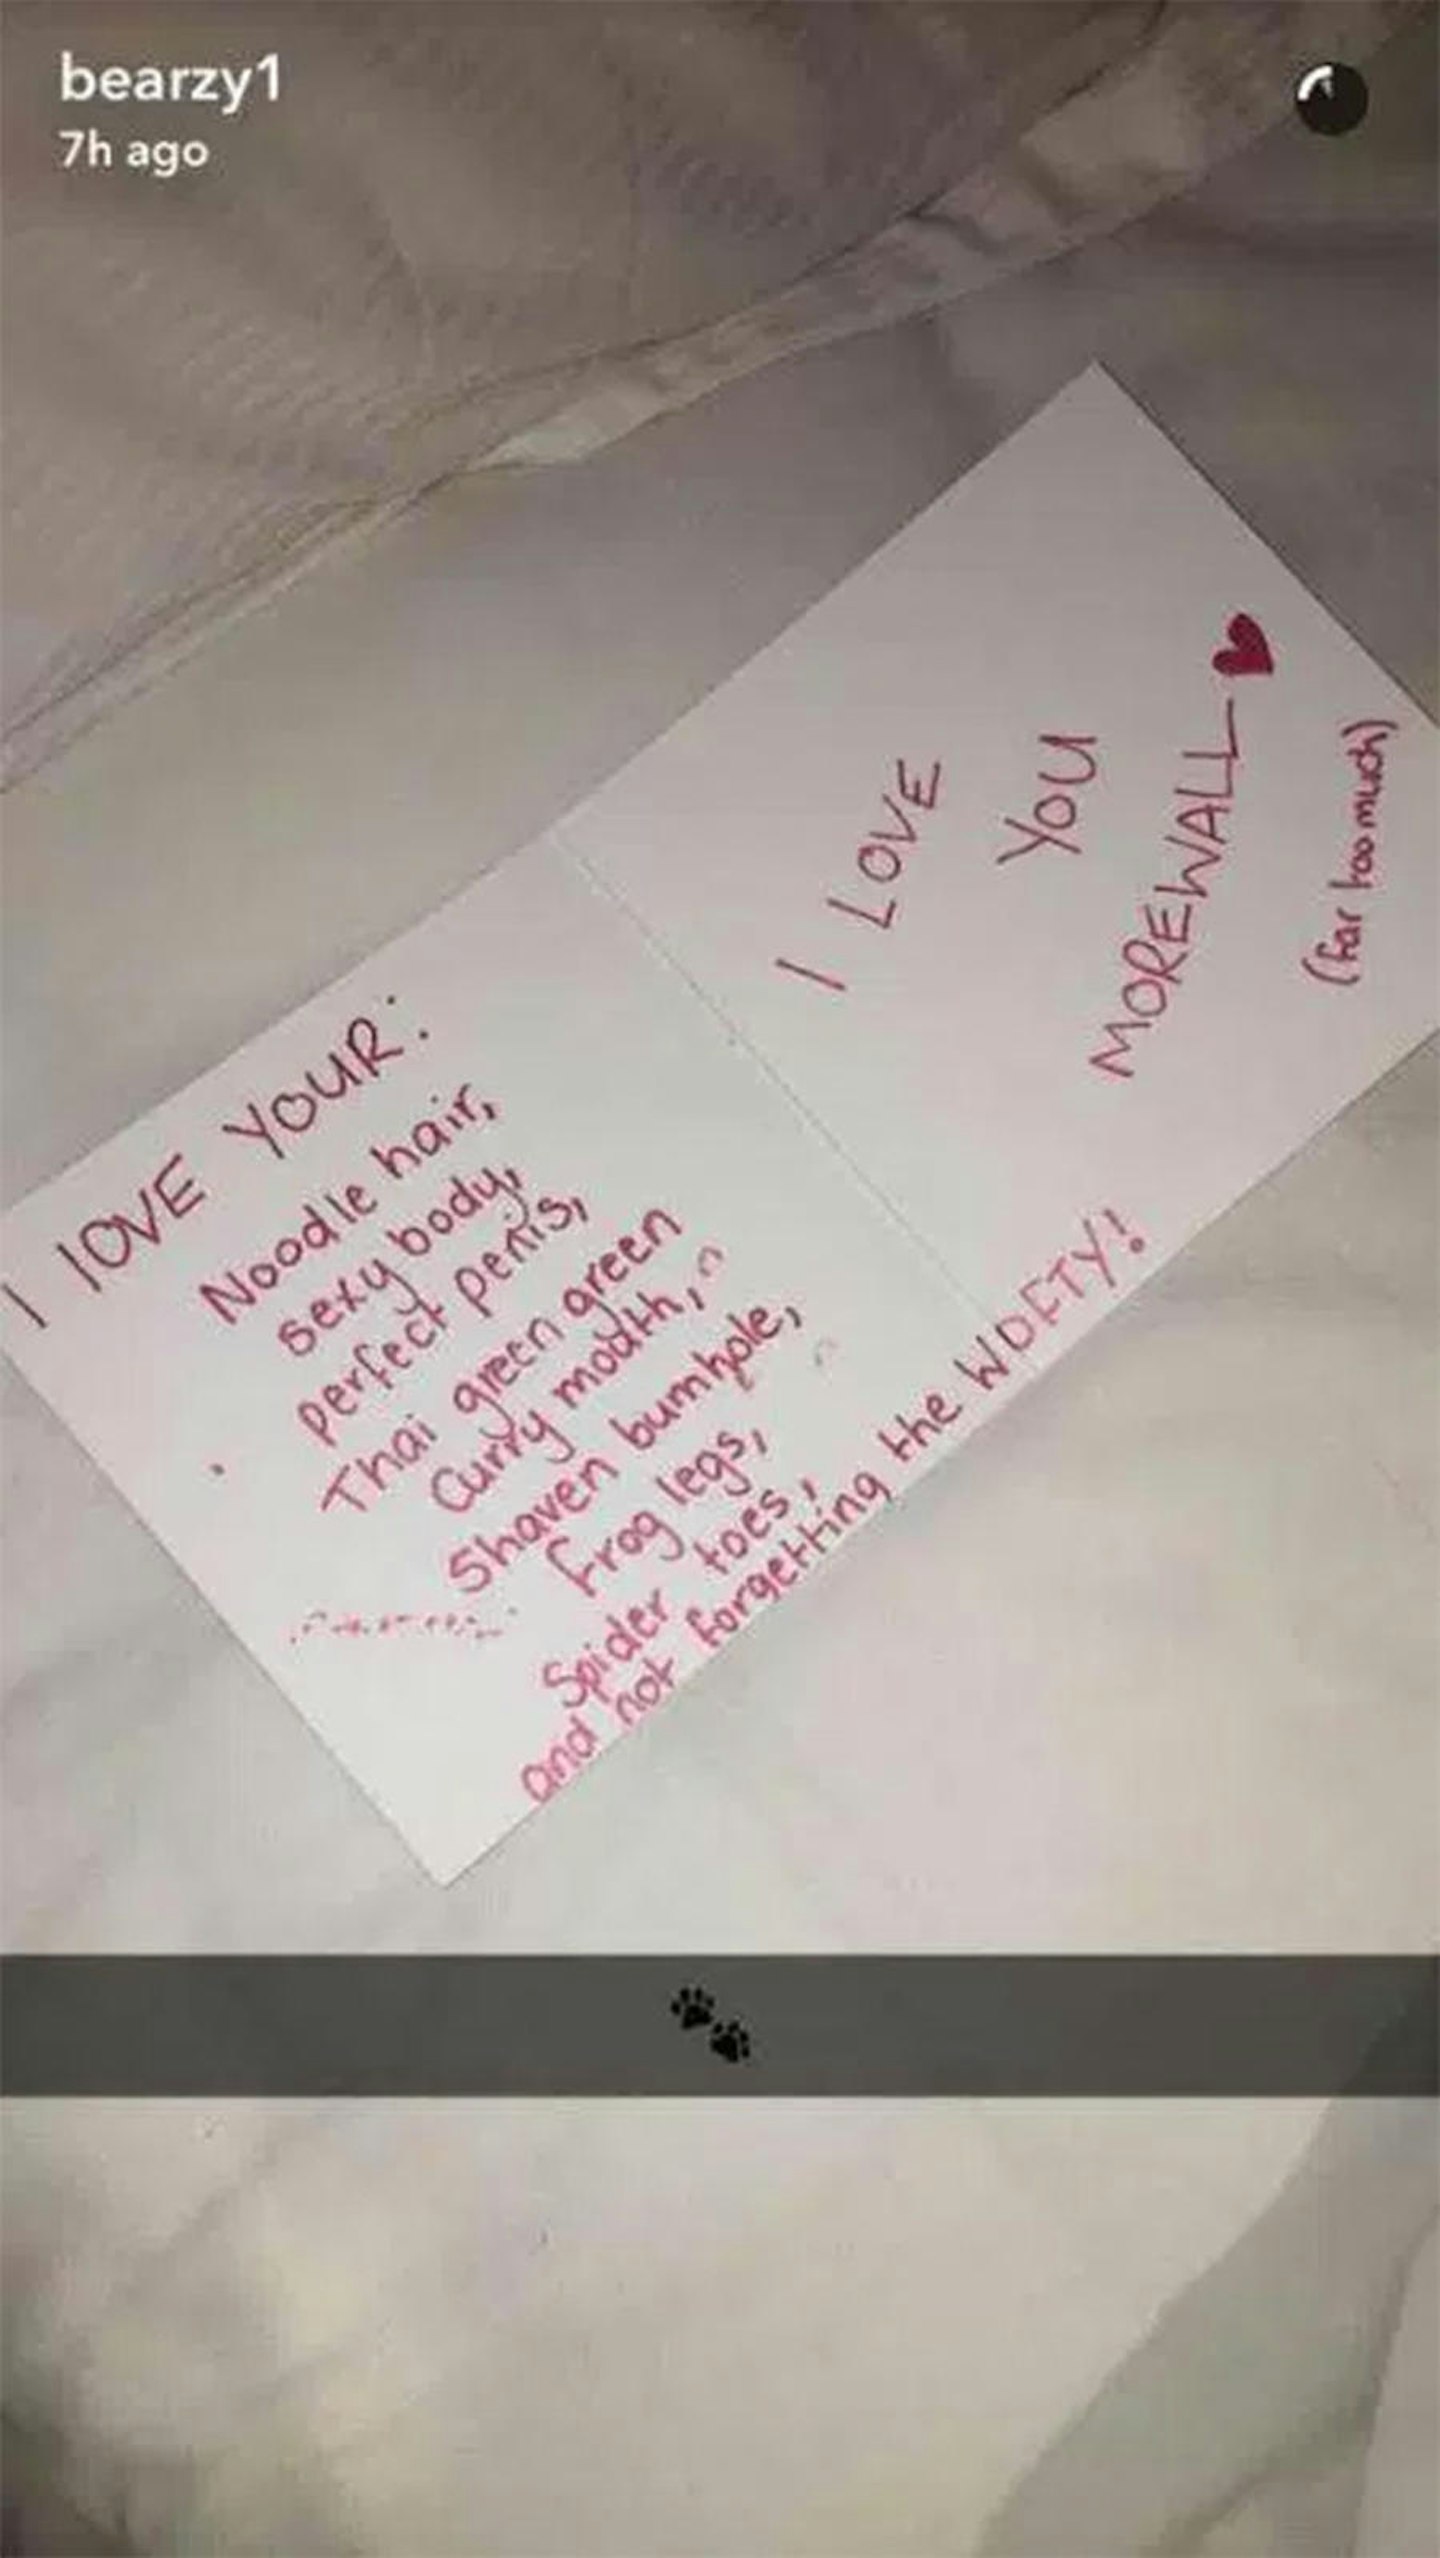 bearzy1
7h ago
I LOVE YOUR:
Noodle hair,
sexy body,
perfect penis,
Thai green green
Curry mouth,
Shaven bumhole,
frog legs,
Spider toes,
and not forgetting the WOFTY!
I LOVE
YOU
MOREWALL
(far too much)